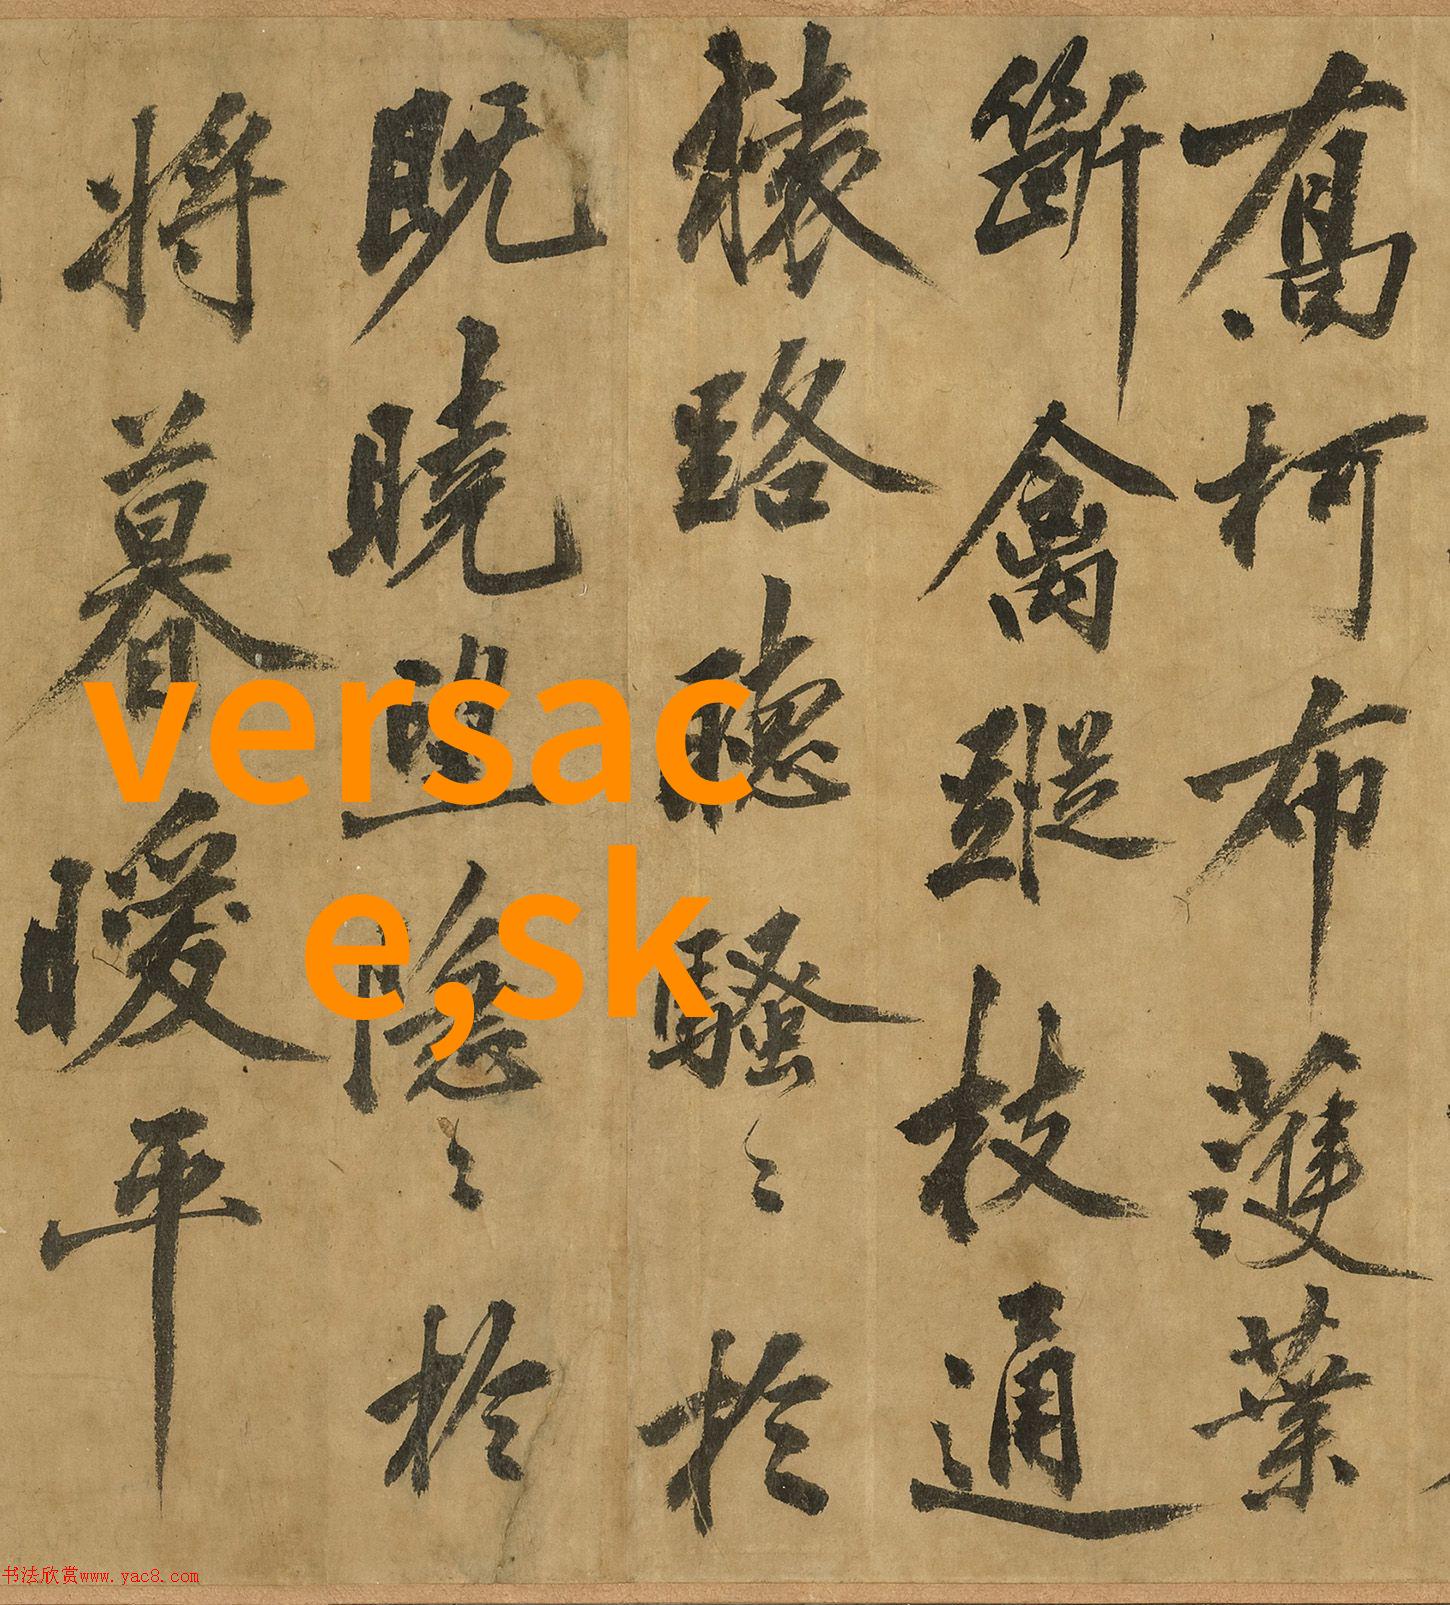 喬柯布濩葉
斷禽蹤枝通
猿路聽騷〻於
既曉望隱〻於
將暮曖平
versac
e,sk
书法欣赏www.yac8.com